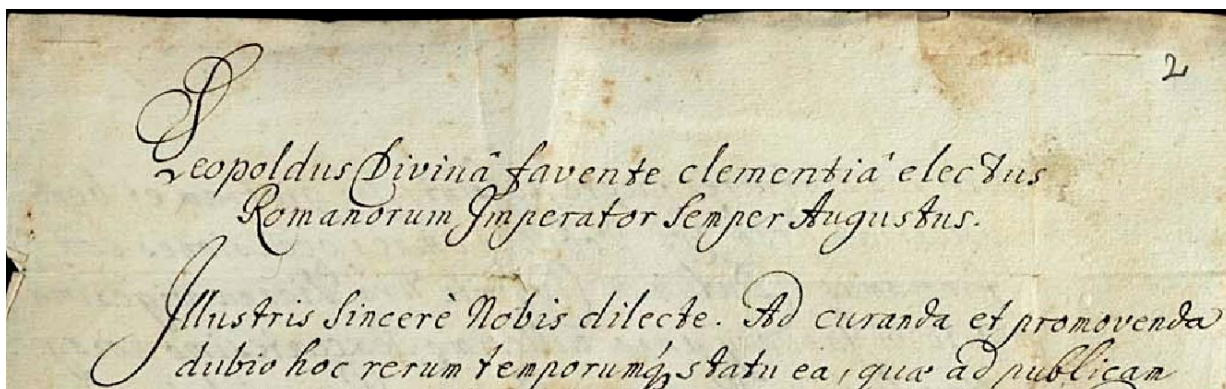 2
Leopoldus Divinâ favente clementiâ electus
Romanorum Imperator Semper Augustus.
Illustris Sincerè Nobis dilecte. Ad curanda et promovenda
dubio hoc rerum temporumq́ statu ea, quæ ad publicam